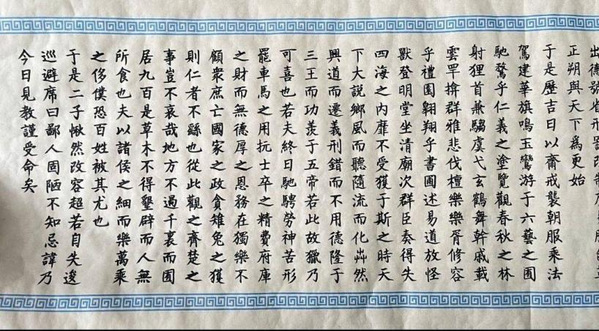 正朔與天下為更始
于是歷吉日以齋戒襲朝服乘法
駕建華旗鳴玉鸞游于六藝之囿
馳騖乎仁義之塗覽觀春秋之林
射狸首兼騶虞弋玄鶴舞幹戚載
雲罕揜群雅悲伐檀樂樂胥修容
乎禮園翱翔乎書圃述易道放怪
獸登明堂坐清廟次群臣奏得失
四海之內靡不受獲于斯之時天
下大說鄉風而聽隨流而化芔然
興道而遷義刑錯而不用德隆于
三王而功羨于五帝若此故獵乃
可喜也若夫終日馳騁勞神苦形
罷車馬之用抗士卒之精費府庫
之財而無德厚之恩務在獨樂不
顧衆庶亡國家之政貪雉兔之獲
則仁者不繇也從此觀之齊楚之
事豈不哀哉地方不過千裏而囿
居九百是草木不得墾辟而人無
所食也夫以諸侯之細而樂萬乘
之侈僕恐百姓被其尤也
于是二子愀然改容超若自失逡
巡避席曰鄙人固陋不知忌諱乃
今日見教謹受命矣